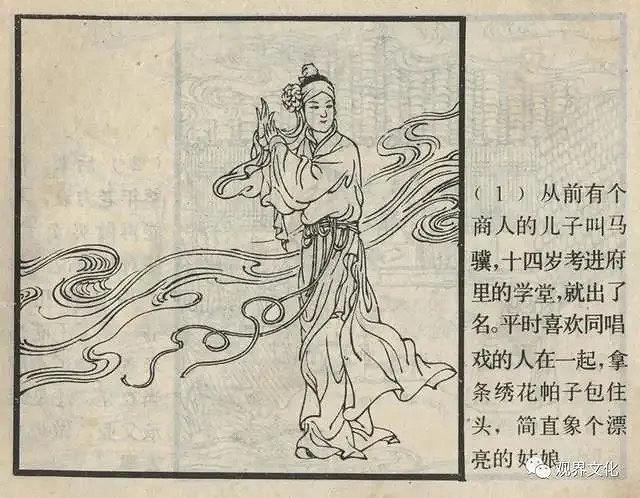 （1）从前有个
商人的儿子叫马
骥，十四岁考进府
里的学堂，就出了
名。平时喜欢同唱
戏的人在一起，拿
条绣花帕子包住
头，简直象个漂
亮的姑娘
观界文化